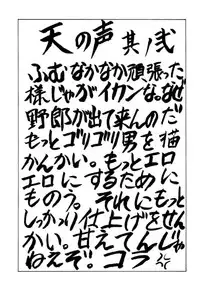 天の声 其ノ弐
ふむなかなか頑張った
様じゃがイカンな。なぜ
野郎が出て来んのだ
もっとゴリゴリ男を描
かんかい。もっとエロ
エロにするために
もの う。それにもっと
しっかり仕上げをせん
かい。甘えてんじゃ
ねえぞ!コラ